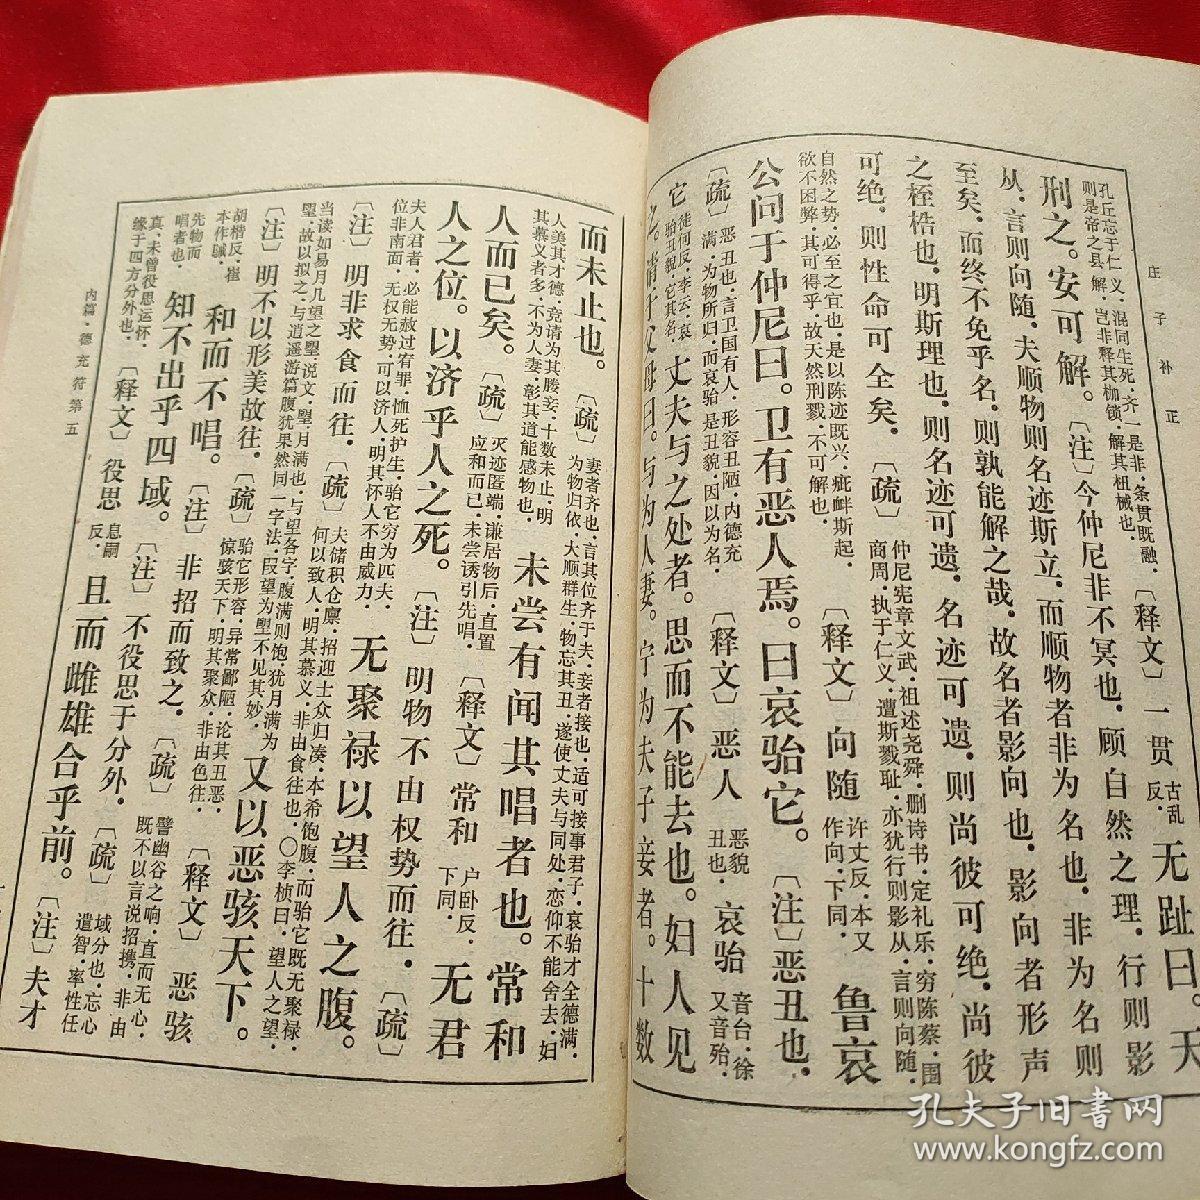 庄子补正
孔丘忘于仁义,混同生死,齐一是非,条贯既融,则是帝之县解,岂非释其枷锁,解其杻械也.〔释文〕一贯古乱反.无趾曰。天
刑之。安可解。〔注〕今仲尼非不冥也,顾自然之理,行则影
从,言则向随,夫顺物则名迹斯立,而顺物者非为名也,非为名则
至矣,而终不免乎名,则孰能解之哉,故名者影向也,影向者形声
之桎梏也,明斯理也,则名迹可遗,名迹可遗,则尚彼可绝,尚彼
可绝,则性命可全矣.〔疏〕仲尼宪章文武,祖述尧舜,删诗书,定礼乐,穷陈蔡,围商周,执于仁义,遭斯戮耻,亦犹行则影从,言则向随,
自然之势,必至之宜也,是以陈迹既兴,疵衅斯起,欲不困弊,其可得乎,故天然刑戮,不可解也.〔释文〕向随许丈反,本又作向,下同.鲁哀
公问于仲尼曰。卫有恶人焉。曰哀骀它。〔注〕恶丑也.
〔疏〕恶丑也,言卫国有人,形容丑陋,内德充满,为物所归,而哀骀是丑貌,因以为名.〔释文〕恶人恶貌丑也.哀骀音台,徐又音殆,
它徒何反,李云,哀骀丑貌,它其名.丈夫与之处者。思而不能去也。妇人见
之。请于父母曰。与为人妻。宁为夫子妾者。十数
而未止也。〔疏〕妻者齐也,言其位齐于夫,妾者接也,适可接事君子,哀骀才全德满,为物归依,大顺群生,物忘其丑,遂使丈夫与同处,恋仰不能舍去,妇
人美其才德,竞请为其媵妾,十数未止,明其慕义者多,不为人妻,彰其道能感物也.未尝有闻其唱者也。常和
人而已矣。〔疏〕灭迹匿端,谦居物后,直置应和而已,未尝诱引先唱.〔释文〕常和户卧反,下同.无君
人之位。以济乎人之死。〔注〕明物不由权势而往.〔疏〕
夫人君者,必能赦过宥罪,恤死护生,骀它穷为匹夫,位非南面,无权无势,可以济人,明其怀人不由威力.无聚禄以望人之腹。
〔注〕明非求食而往.〔疏〕夫储积仓廪,招迎士众归凑,本希饱腹,而骀它既无聚禄,何以致人,明其慕义,非由食往也.〇李桢曰,望人之望,
当读如易月几望之望,说文,朢,月满也,与望各字,腹满则饱,犹月满为朢,故以拟之,与逍遥游篇腹犹果然同一字法,叚望为朢不见其妙.又以恶骇天下。
〔注〕明不以形美故往.〔疏〕骀它形容,异常鄙陋,论其丑恶,惊骇天下,明其聚众,非由色往.〔释文〕恶骇
胡楷反,崔本作駴.和而不唱。〔注〕非招而致之.〔疏〕譬幽谷之响,直而无心,既不以言说招携,非由
先物而唱者也.知不出乎四域。〔注〕不役思于分外.〔疏〕域分也,忘心遣智,率性任
真,未曾役思运怀,缘于四方分外也.〔释文〕役思息嗣反.且而雌雄合乎前。〔注〕夫才
内篇·德充符第五
孔夫子旧书网
www.kongfz.com